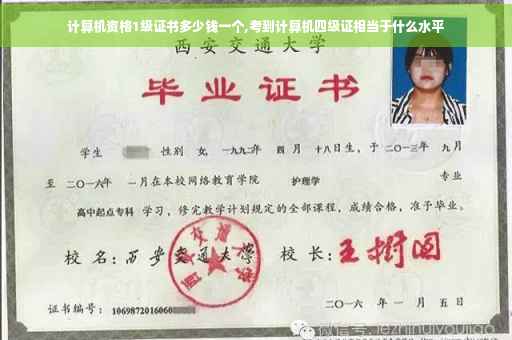 计算机资格1级证书多少钱一个,考到计算机四级证相当于什么水平
西安交通大学
毕业证书
学生 性别 女, 一九九二年 四月 十八日生, 于二〇一三年 九月
至 二〇一六年 一月在本校网络教育学院 护理学 专业
高中起点专科 学习, 修完教学计划规定的全部课程, 成绩合格, 准予毕业。
校名: 西安交通大学 校长: 王树国
西安交通大学
证书编号: 1069872016060 二〇一六年 一月 五日
微信号: jiezhinuiyoujiao